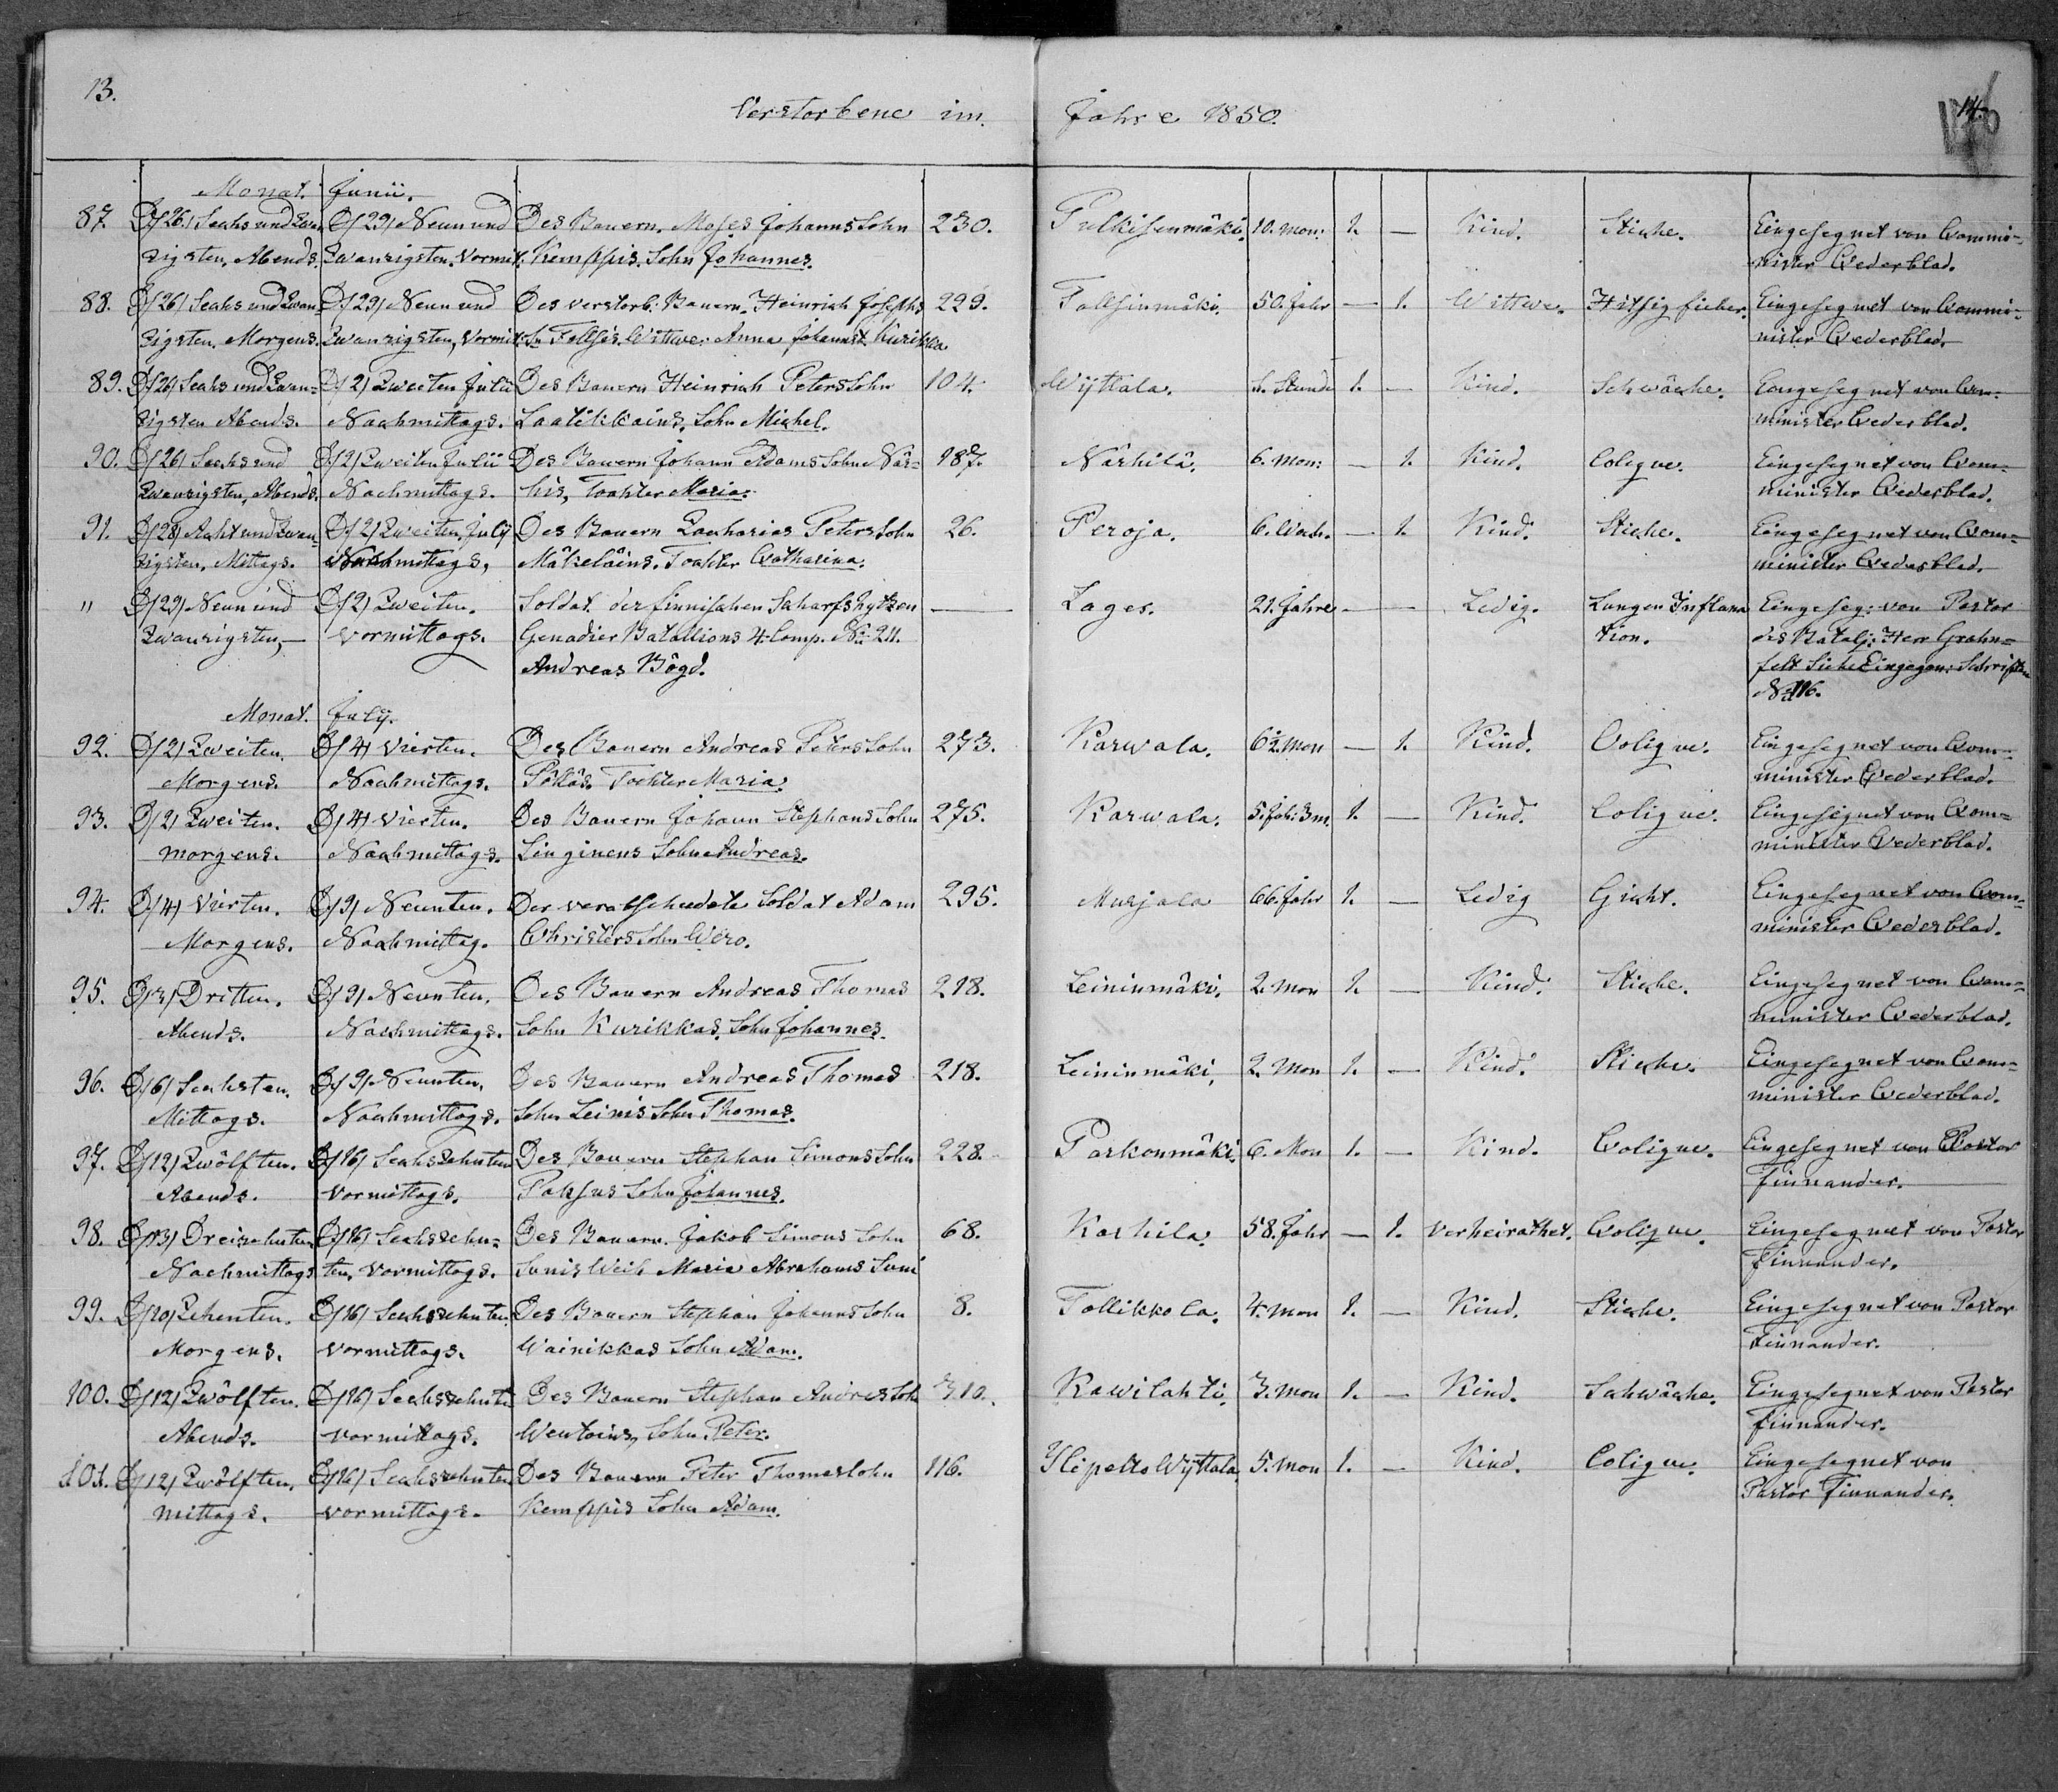 13.
Verstorbene im Jahre 1850.
14.
Monat. Junii.
87. D/26/ Sechs und Zwan- D/29/ Neun und Des Bauern. Moses Johanns Sohn 230. Pulkisenmäki. 10. Mon: 1. — Kind. Stiche. Eingesegnet von Commi-
zigsten, Abends. Zwanzigsten. Vormit. Kemppis. Sohn Johannes. nister Cederblad.
88. D/26/ Sechs und Zwan- D/29/ Neun und Des verstorb. Bauern. Heinrich Josephs 229. Tollsinmäki. 50. Jahr — 1. Wittwe. Hitsig fieber. Eingesegnet von Commi-
zigsten. Morgens. Zwanzigsten, Vormit. Sn Wittwe. Anna Johannst. Kurikka nister Cederblad.
89. D/26/ Sechs und Zwan- D/2/ Zweiten Julii Des Bauern Heinrich Peters Sohn 104. Wÿttala. Stunde 1. — Kind. Schwäche. Eingesegnet von Com-
zigsten Abends. Nachmittags. Laatikkains, Sohn Michel. minister Cederblad.
90. D/26/ Sechs und D/2/ Zweiten Julii Des Bauern Johann Adams Sohn När- 187. Närhilä. 6. Mon: — 1. Kind. Coligue. Eingesegnet von Com-
Zwanzigsten, Abends. Nachmittags. his, Tochter Maria. minister Cederblad.
91. D/28/ Acht und Zwan- D/2/ Zweiten, July Des Bauern Zacharias Peters Sohn 26. Peroja. 6. Woch. — 1. Kind. Stiche. Eingesegnet von Com-
zigsten, Mittags. Nachmittags, Mäkeläins. Tochter Catharina. minister Cederblad.
" D/29/ Neun und D/2/ Zweiten. Soldat der finnischen Scharfshytzen — Lager. 21. Jahre — — Ledig. Lungen Inflama Eingeseg: von Pastor
Zwanzigsten, — Vormittags. Genadier Batallions 4. Comp. No 211. tion. des Batalj: Herr Grahn-
Andreas Bögd. felt Siehe Eingegan: Schriften
No 116.
Monat. July.
92. D/2/ Zweiten. D/4/ Vierten. Des Bauern Andreas Peters Sohn 273. Karwala. 6½ Mon — 1. Kind. Coligue. Eingesegnet von Com-
Morgens. Nachmittags. Pökäs. Tochter Maria. minister Cederblad.
93. D/2/ Zweiten. D/4/ Vierten. Des Bauern Johann Stephans Sohn 275. Karwala. 5. Jah: 3 m. 1. — Kind. Coligue. Eingesegnet von Com-
morgens. Nachmittags. Linginens Sohn Andreas. minister Cederblad.
94. D/4/ Vierten. D/9/ Neunten. Der verabschiedete Soldat Adam 295. Murjala 66. Jahr 1. — Ledig Gicht. Eingesegnet von Com-
Morgens. Nachmittag. Christers Sohn Wiro. minister Cederblad.
95. D/3/ Dritten. D/9/ Neunten. Des Bauern Andreas Thomas 218. Leininmäki. 2. Mon 1. — Kind. Stiche. Eingesegnet von Com-
Abends. Nachmittags. Sohn Kurikkas. Sohn Johannes. minister Cederblad.
96. D/6/ Sechsten. D/9/ Neunten. Des Bauern Andreas Thomas 218. Leininmäki, 2. Mon 1. — Kind. Stiche. Eingesegnet von Com-
Mittags. Nachmittags. Sohn Leinis Sohn Thomas. minister Cederblad.
97. D/12/ Zwölften. D/16/ Sechszehnten Des Bauern Stephan Simons Sohn 228. Parkonmäki. 6. Mon 1. — Kind. Coligue. Eingesegnet von Pastor
Abends. Vormittags. Paksus Sohn Johannes. Finnander.
98. D/13/ Dreizehnten D/16/ Sechszehn- Des Bauern. Jakob Simons Sohn 68. Karhila. 58. Jahr — 1. Verheirathet. Coligue. Eingesegnet von Pastor
Nachmittags ten, Vormittags. Sunis Weib Maria Abrahams Suni Finnander.
99. D/10/ Zehenten. D/16/ Sechszehnten. Des Bauern Stephan Johanns Sohn 8. Tollikkola. 4. Mon 1. — Kind. Stiche. Eingesegnet von Pastor
Morgens. Vormittags. Wainikkas Sohn Adam. Finnander.
100. D/12/ Zwölften. D/16/ Sechszehnte Des Bauern Stephan Andres Sohn 310. Kawilahti. 3. Mon 1. — Kind. Schwäche. Eingesegnet von Pastor
Abends. Vormittags. Wentoins, Sohn Peter. Finnander.
101. D/12/ Zwölften. D/16/ Sechszehnten Des Bauern Peter Thomas Sohn 116. Ylipelto Wÿttala 5. Mon 1. — Kind. Coligue. Eingesegnet von
Mittags. Vormittags. Kemppis Sohn Adam. Pastor Finnander.